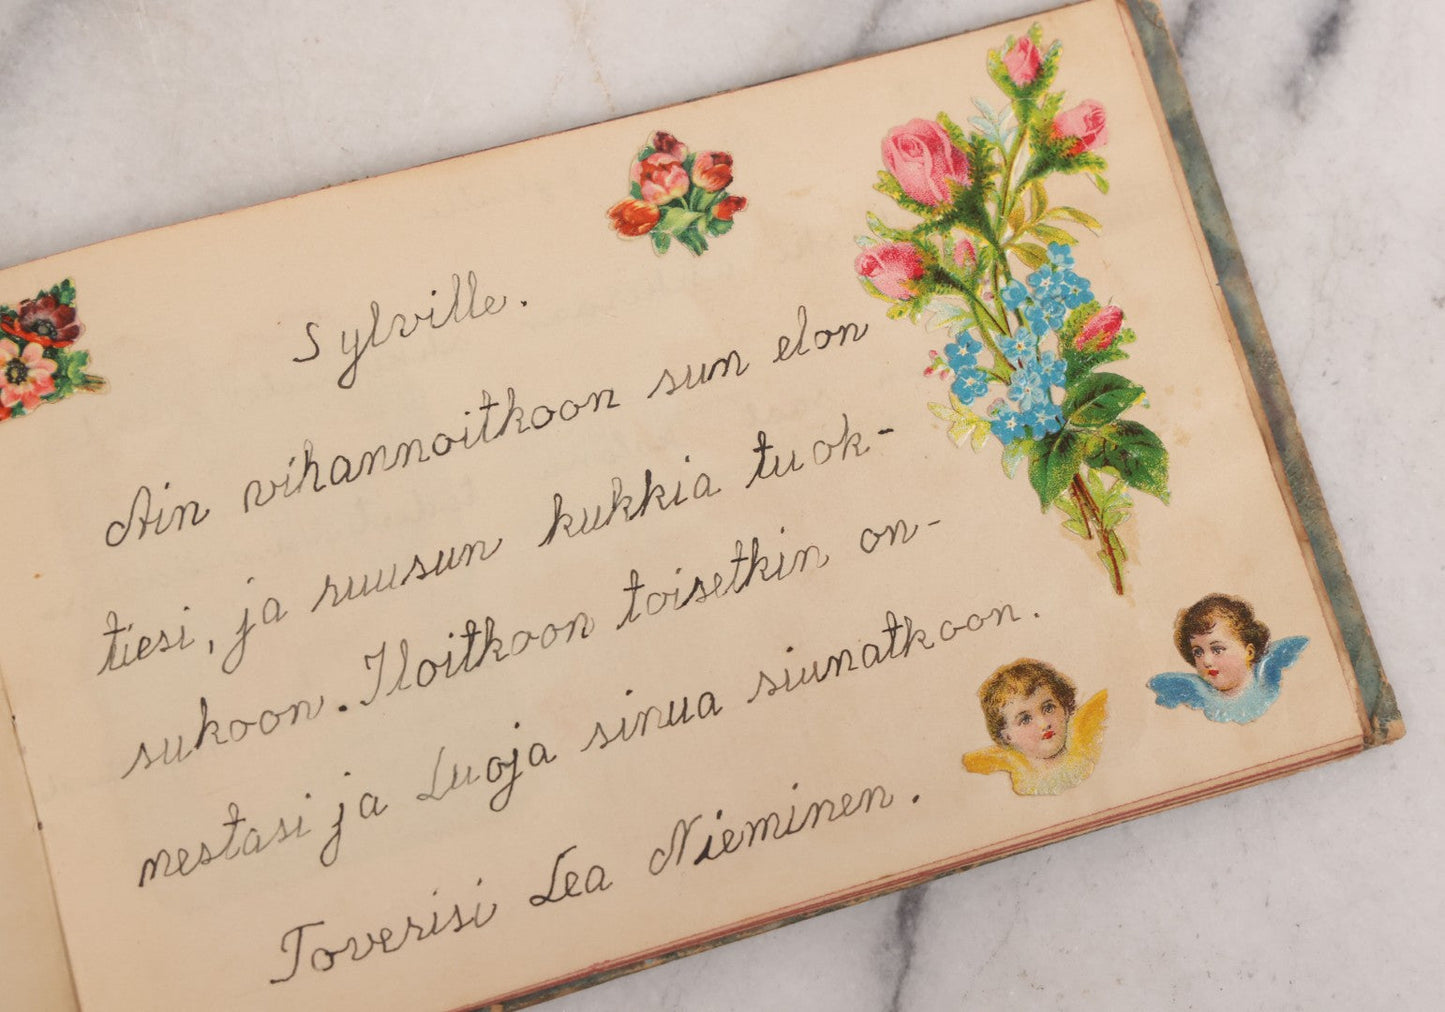 Sylville.
Ain vihannoitkoon sun elon
tiesi, ja ruusun kukkia tuok-
sukoon. Iloitkoon toisetkin on-
nestasi ja Luoja sinua siunatkoon.
Toverisi Lea Nieminen.